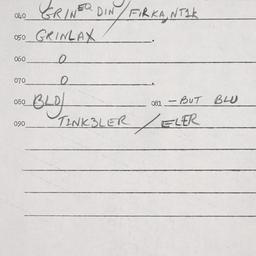 040 GRIN EQ DIN / FIRKA, NT1K
050 GRINLAX
060 0
070 0
080 BLD/ 081 - BUT BLU
090 TINK3LER / ELER